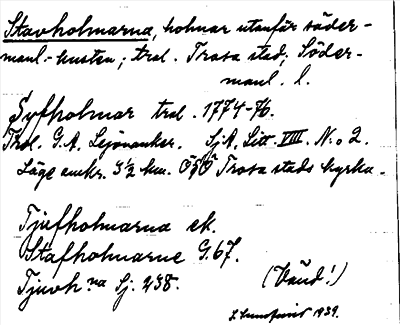 Stavholmarna, holmar utanför söder-
manl.-kusten; tral. Trosa stad, Söder-
manl. l.
Syfholmar tral. 1774-76.
G.A. Sjökarter. SjA, Litt. VIII. N:o 2.
Läge omkr. 3 1/2 km. OSO Trosa stads kyrka.
Tjufholmarna ek.
Stafholmarne G.67.
Tjuvh:na Sj. 238. (Vänd!)
1939.